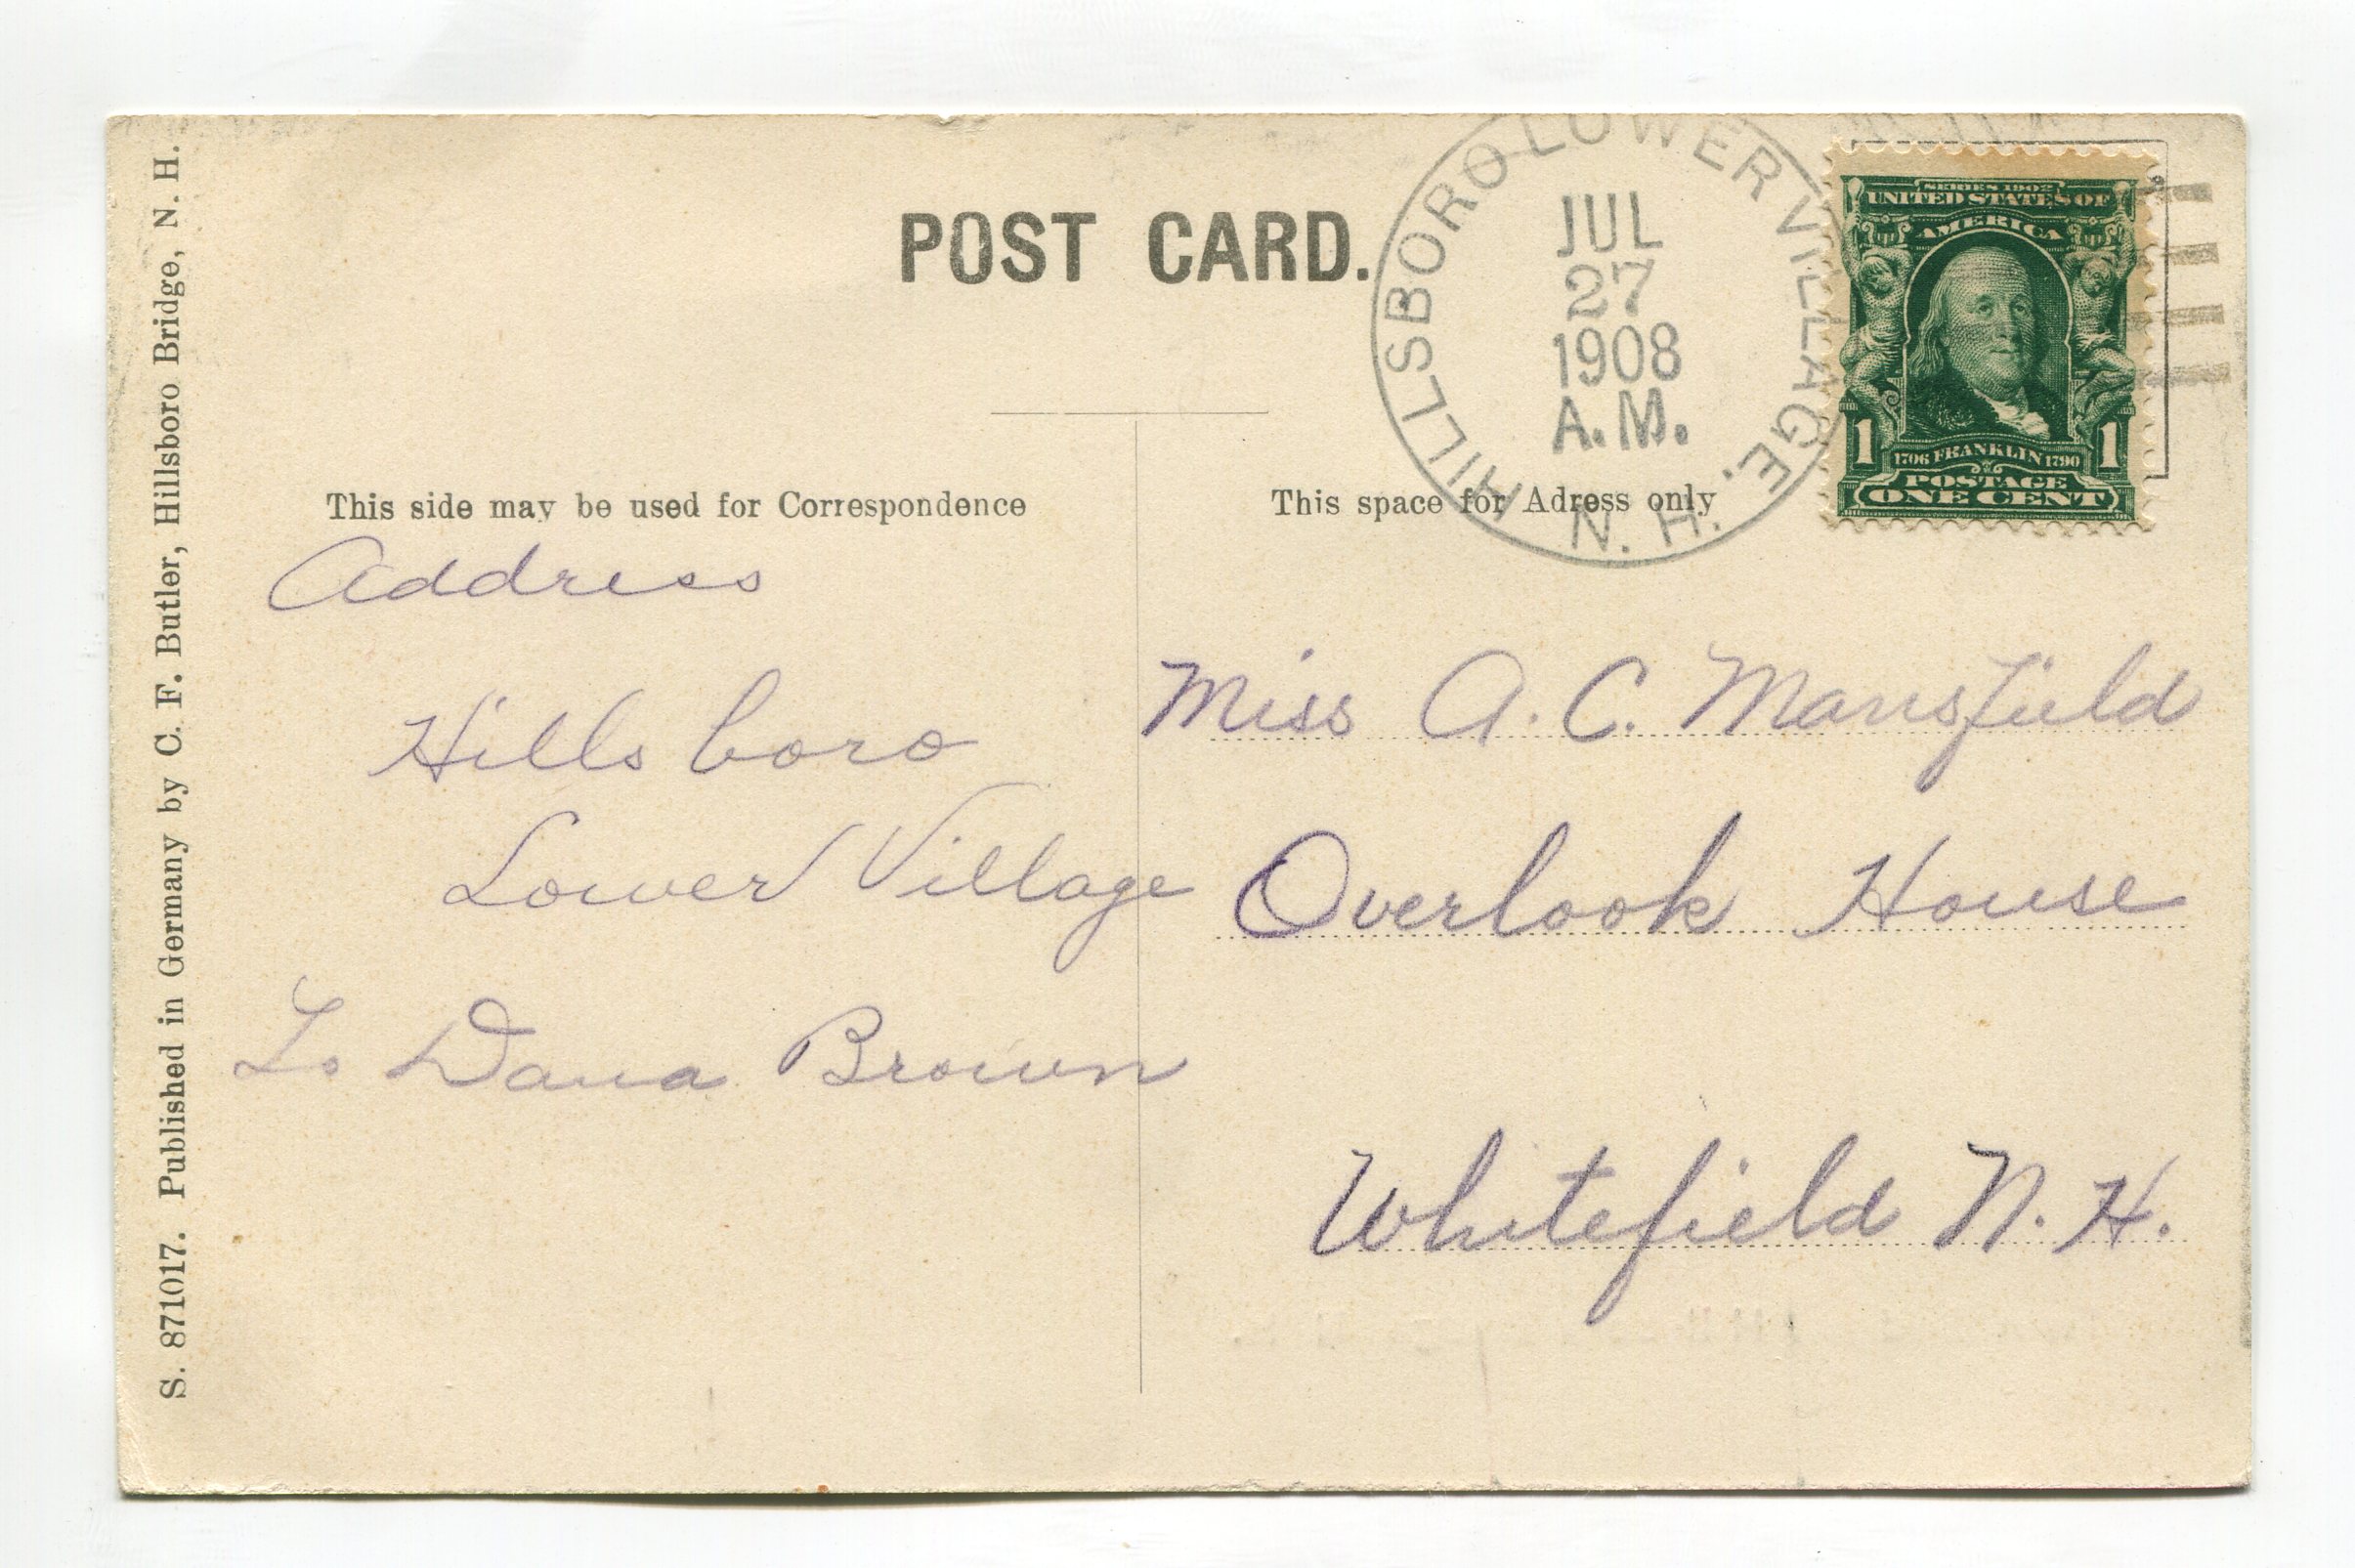 POST CARD.
HILLSBORO LOWER VILLAGE.
N. H.
JUL
27
1908
A.M.
SERIES 1902
UNITED STATES OF
AMERICA
1 1
1706 FRANKLIN 1790
POSTAGE
ONE CENT
This side may be used for Correspondence
This space for Adress only
Address
Hillsboro
Lower Village
To Dana Brown
Miss A. C. Mansfield
Overlook House
Whitefield N. H.
S. 871017. Published in Germany by C. F. Butler, Hillsboro Bridge, N. H.